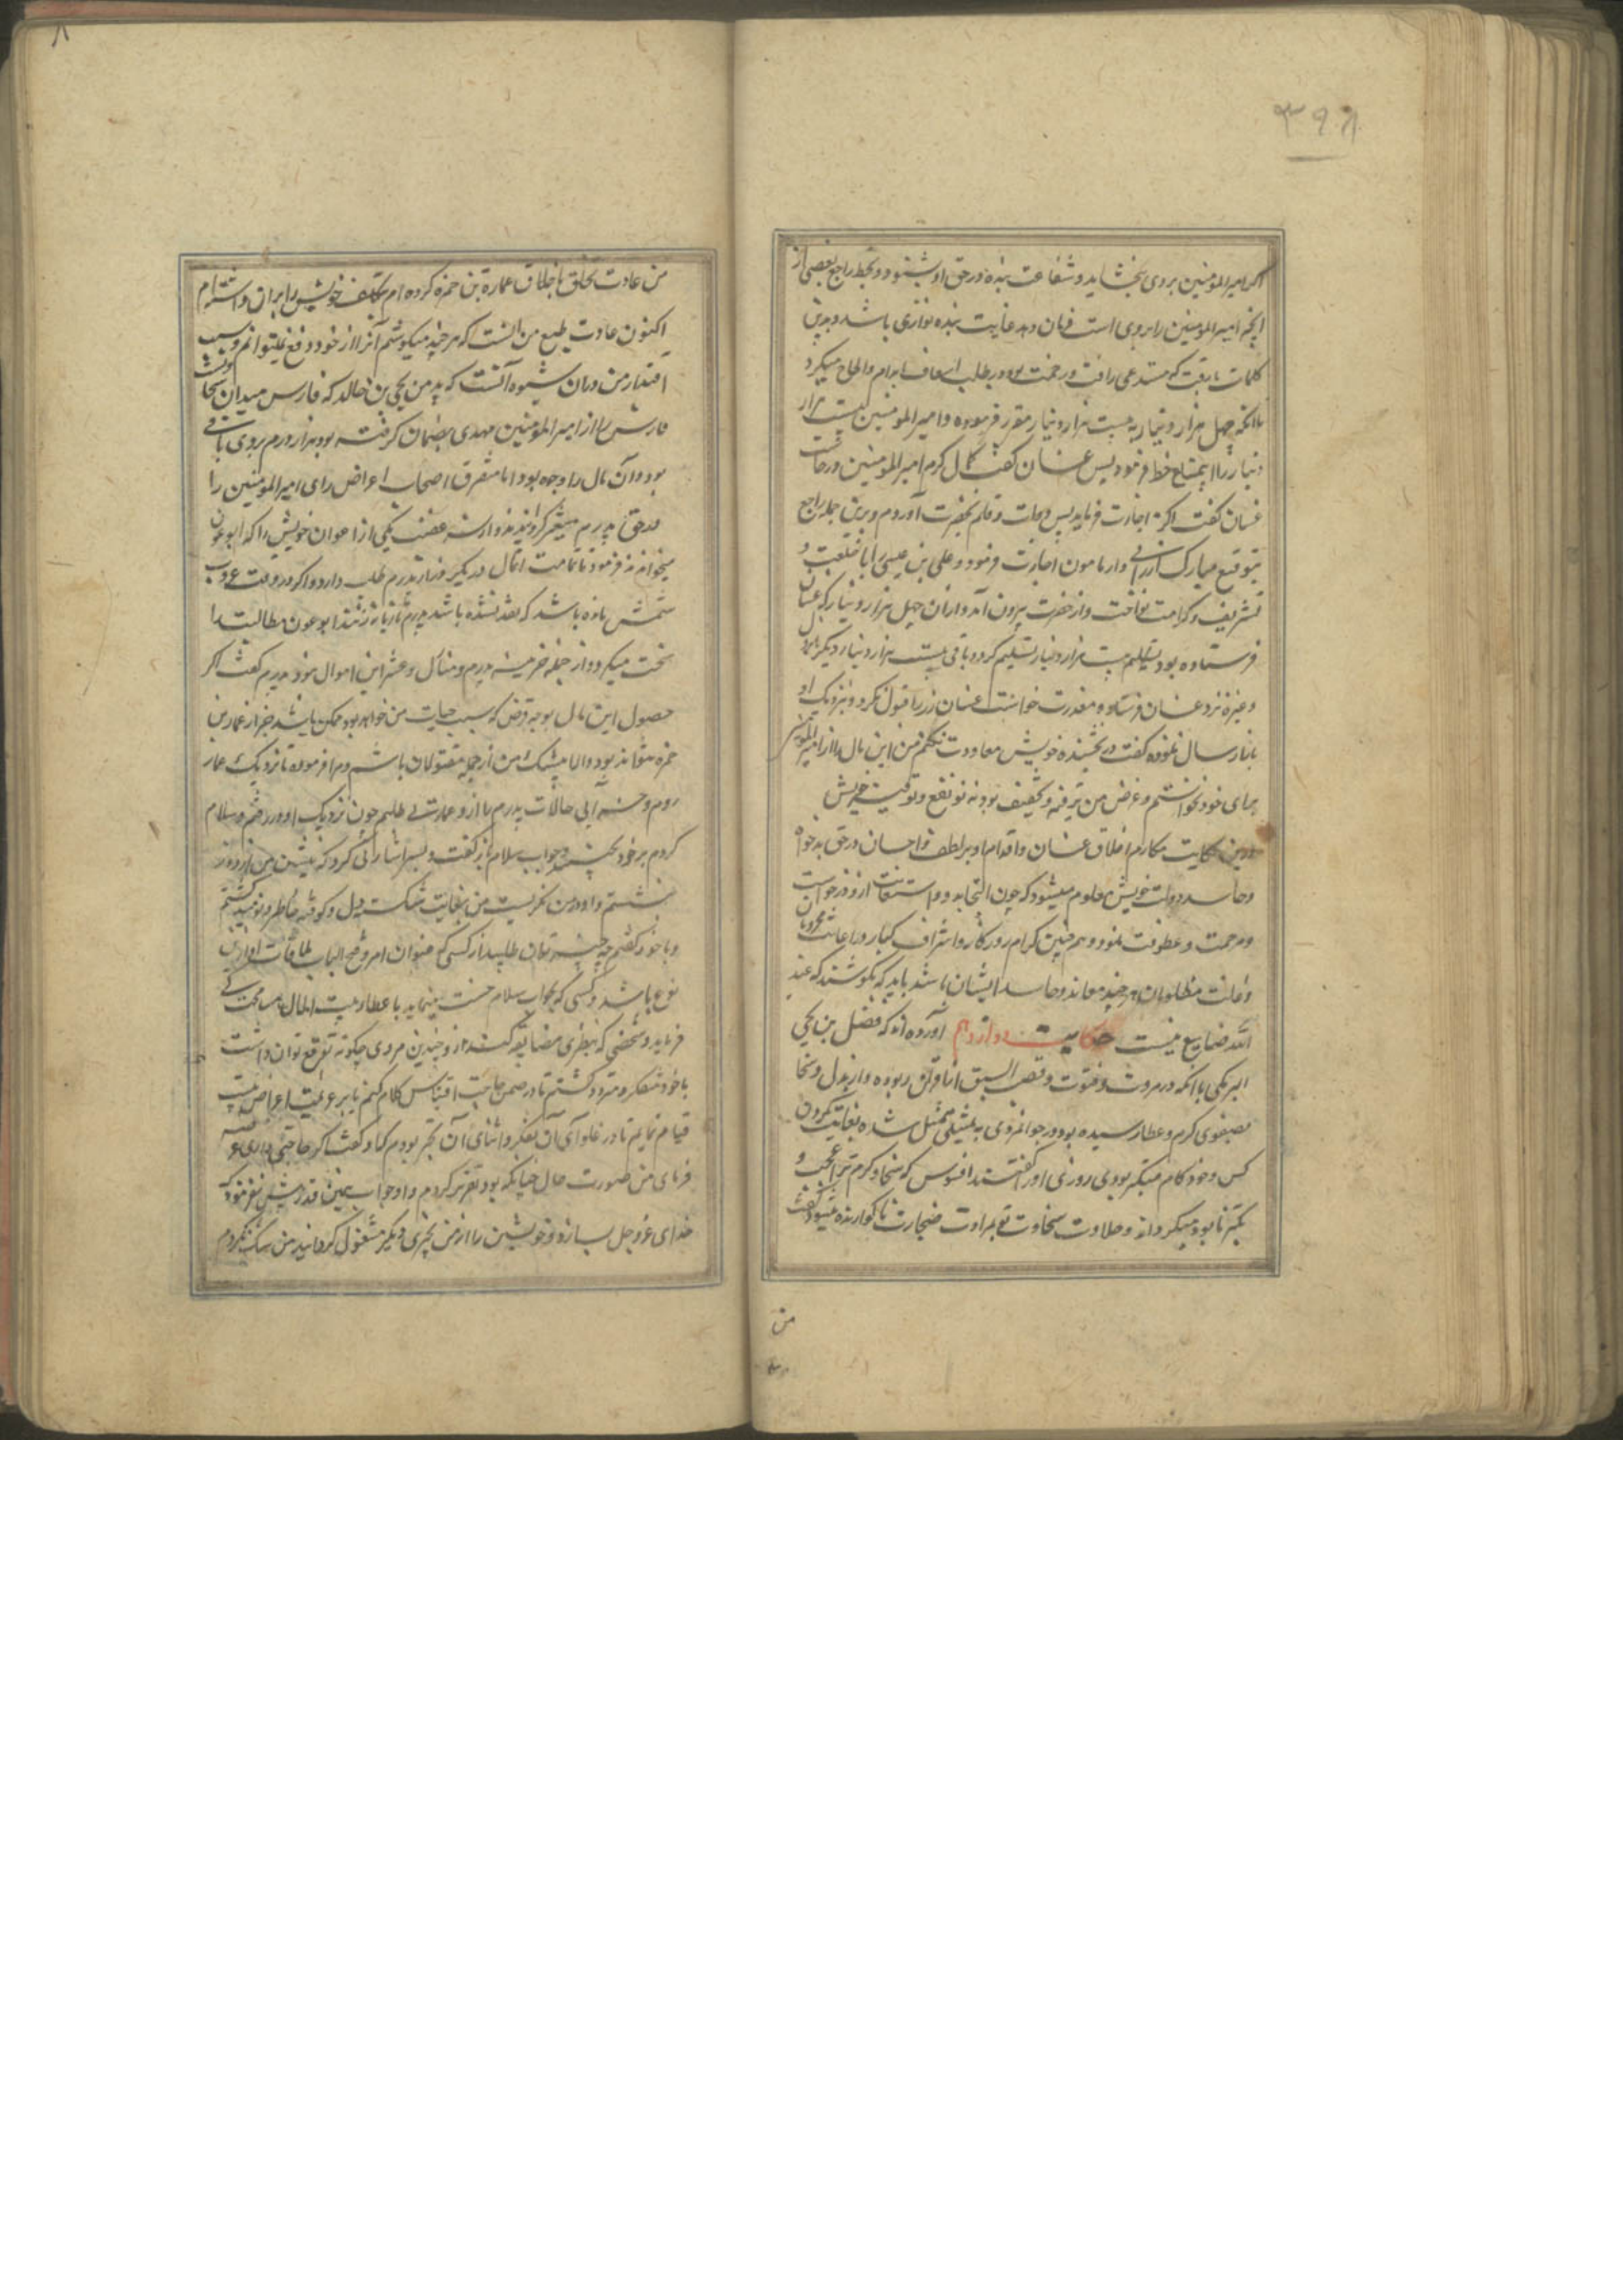 ۳۹۹
اکر امیرالمؤمنین بروی بخشاید و شفاعت بنده در حق او بشنود و بخط راجع بعضی از
آنچه امیرالمومنین را بروی است فرمان دهد غایت بنده نوازی باشد و بدین
کلمات با رقت که مستدعی رافت و رحمت بود در طلب اسعاف ابرام و الحاح میکرد
تا آنکه چهل هزار دینار به بیست هزار دینار مقرر فرموده و امیرالمومنین بیست هزار
دینار را خط فرمود پس غسان کفت کمال کرم امیرالمومنین
غسان کفت اکر اجازت فرماید پس دوات و قلم بحضرت آوردم و برین جمله راجع
بتوقیع مبارک ارزانی دار مامون اجازت فرمود و علی بن عیسی را با خلعت و
تشریف و کرامت نواخت و از حضرت بیرون آمد و از ان چهل هزار دینار که غسان
فرستاده بود بیست هزار دینار تسلیم کرد و باقی بیست هزار دینار دیکر
و غیره نزد غسان فرستاد و معذرت خواست غسان زر را قبول نکرد و نزدیک او
باز ارسال نموده کفت در بخشیده خویش معاودت نکنم من این مال را از امیرالمومنین
برای خود نخواستم و غرض من ترفیه و تخفیف بود نه نفع و توفیر خویش
درین حکایت مکارم اخلاق غسان و اقدام او بر لطف و احسان در حق بدخواه
و حاسد دولت خویش معلوم میشود که چون التجا بدو و استعانت ازو درخواست
و مرحمت و عطوفت نمود و همچنین کرام روزکار و اشراف کبار در اعانت محرومان
و اغاثت مظلومان هر چند معاند و حاسد ایشان باشد باید که بکوشند که عند
الله ضایع نیست حکایت دوازدهم آورده اند که فضل بن یحیی
البرمکی با آنکه در مروت و فتوت و قصب السبق از اقران ربوده و از بذل و سخا
بصفوی کرم و عطا رسیده بود و در جوانمردی به بیمثلی ممثل شده بغایت کردن
کش و خودکام متکبر بودی روزی او را کفتند افسوس که سخا و کرم ترا عجب و
تکبر نابود میکرداند و حلاوت سخاوت تو بمرارت ضجارت ناکوارنده میشود کفت
من
۸
من عادت تخلق باخلاق عمارة بن حمزه کرده ام بتکلف خویش را بران داشته ام
اکنون عادت طبع من است که هر چند میکوشم آنرا از خود دفع نمیتوانم و سبب
اقتدار من دران شیوه آنست که پدر من یحیی بن خالد که فارس میدان سخا
فارس را از امیرالمؤمنین مهدی بضمان کرفته بود هزار درم بروی باقی
بود و آن مال را وجوه بود اما متفرق اصحاب اغراض رای امیرالمومنین را
در حق پدرم متغیر کردانیدند و از سر غضب یکی از اعوان خویش را که ابوعون
میخوانند فرمود تا تمامت اموال از پدرم طلب دارد و اکر در وقت غروب
شمس مانده باشد که نقد نشده باشد پدرم را تازیانه زنند ابوعون مطالبت را
سخت میکرد و از جمله خزینه پدرم و منال و عشر این اموال نبود پدرم کفت اکر
حصول این مال بوجه قرض که سبب حیات من خواهد بود ممکن باشد جز از عمارة بن
حمزه نتواند بود و الا بیشک من از جمله مقتولان باشم و مرا فرمود تا نزدیک عمار
روم و حالات پدرم باز نمایم چون نزدیک او در رفتم و سلام
کردم بر خود نجنبید و جواب سلام باز کفت و بسر اشارتی کرد که بنشین من
بنشستم و او در من نکریست من بغایت شکسته دل و کوفته خاطر و نومید کشتم
و با خود کفتم چه چیز توان طلبید از کسی که عنوان امر و فتح الباب ملاقات او ازین
نوع باشد و کسی که بجواب سلام خست نماید با عطاء بیت المال مسامحت کی
فرماید و شخصی که بنظری مضایقه کند ازو چندین مروی چکونه توقع توان داشت
با خود متفکر و متردد کشتم تا در ضمن حاجت اقتباس کلام کنم یا بر
قیام نمایم تا در غلوای آن تفکر و اثنای آن تحیر بودم که او کفت اکر حاجتی داری
فرمای من صورت حال چنانکه بود تقریر کردم و او جواب همین قدر بیش نفرمود که
خدای عز و جل بسازد و خویشتن را از من بچیزی دیکر مشغول کردانید من سبک بدرم